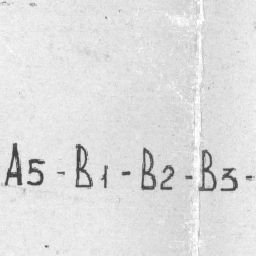 A5 - B1 - B2 - B3 -